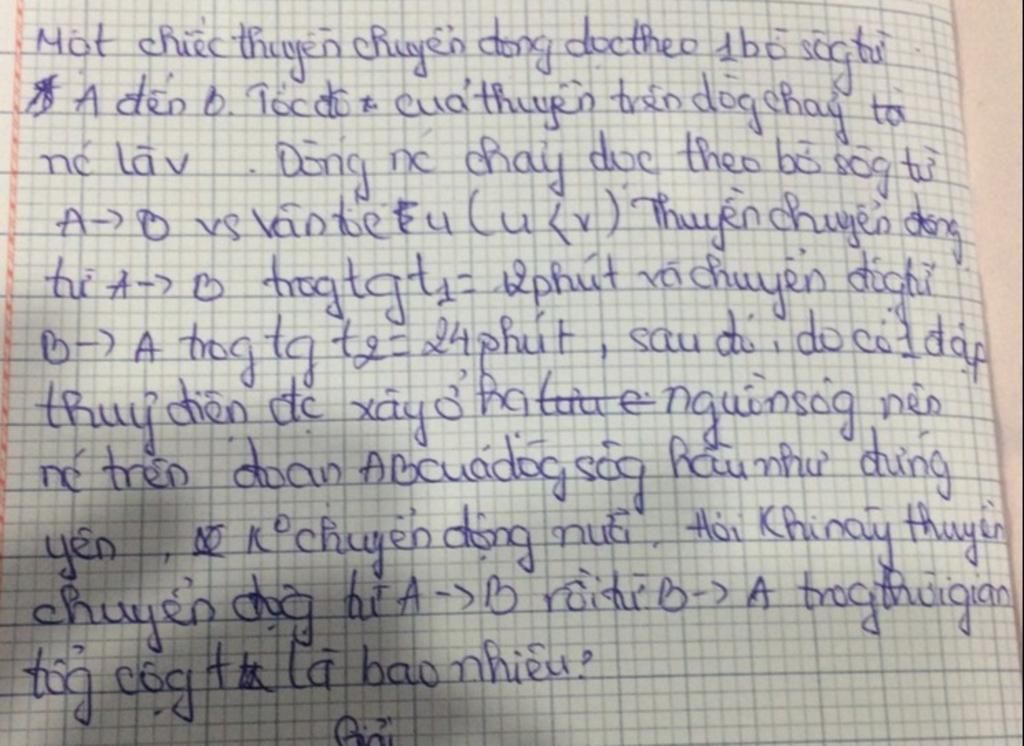 Một chiếc thuyền chuyển động dọc theo 1 bờ sôg từ
A đến B. Tốc độ của thuyền trên dòg chảy
nc là v. Dòng nc chảy dọc theo bờ sôg từ
A → B vs vận tốc u (u < v) Thuyền chuyển động
từ A → B trog tg t1 = 12 phút và chuyển độg từ
B → A trog tg t2 = 24 phút, sau đó, do có 1 đập
thuỷ điện đc xây ở nguồn sôg nên
nc trên đoạn AB của dòg sôg hầu như đứng
yên, K° chuyển động nữa. Hỏi Khi này thuyền
chuyển độg từ A → B rồi từ B → A trog thời gian
tổg cộg t là bao nhiêu?
Giải